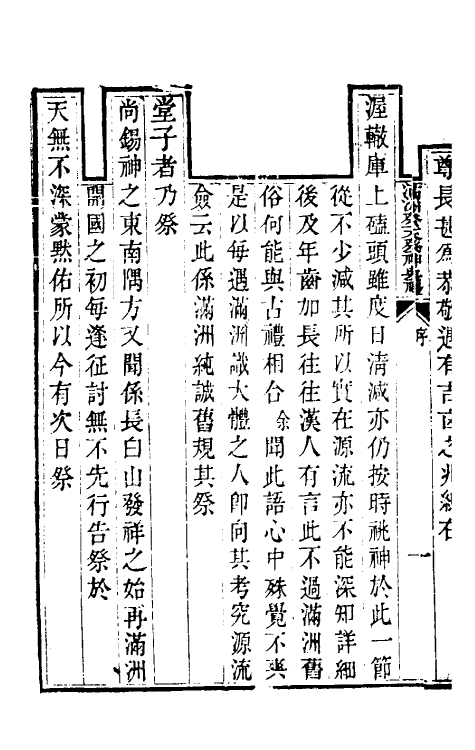 尊長甚爲恭敬遇有吉凶之兆總在
序
一
渥轍庫上磕頭雖度日清減亦仍按時祧神於此一節
從不少減其所以實在源流亦不能深知詳細
後及年齒加長往往漢人有言此不過滿洲舊
俗何能與古禮相合余聞此語心中殊覺不爽
是以每遇滿洲識大體之人卽向其考究源流
僉云此係滿洲純誠舊規其祭
堂子者乃祭
尚錫神之東南隅方又聞係長白山發祥之始再滿洲
開國之初每逢征討無不先行告祭於
天無不深蒙默佑所以今有次日祭